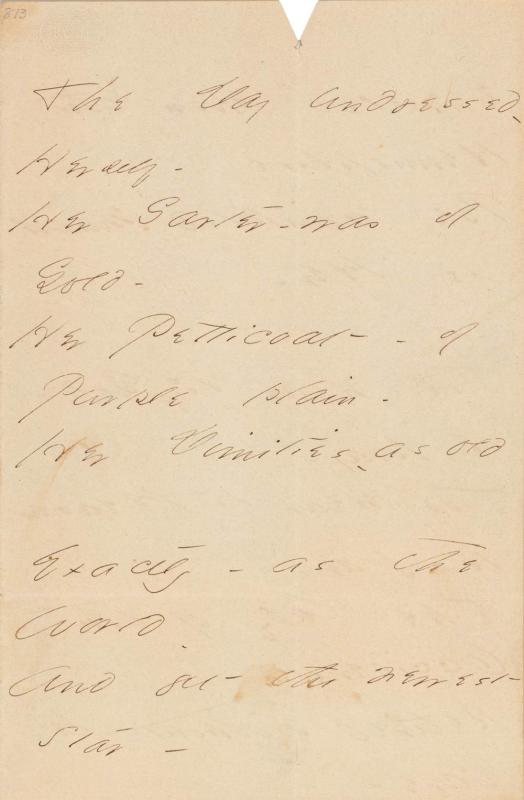 813
The Day undressed -
Herself -
Her Garter - was of
Gold -
Her Petticoat - of
Purple plain -
Her Dimities - as old
Exactly - as the
World
And yet the newest
Star -